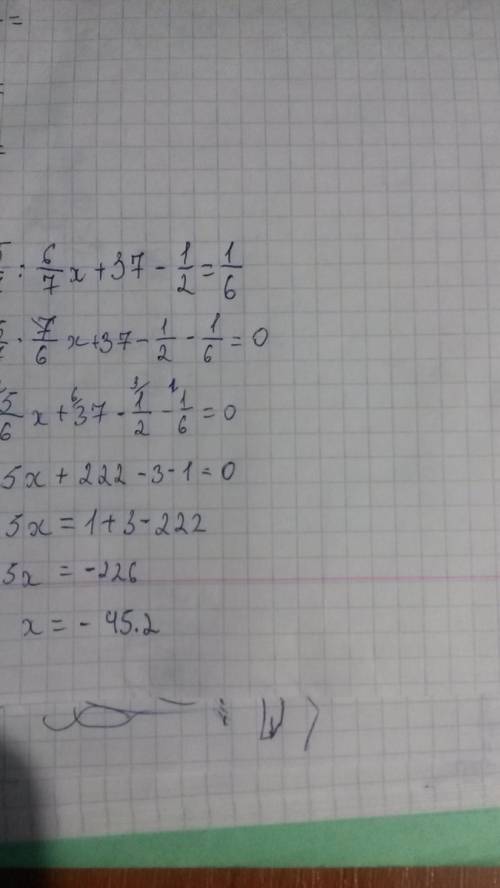 =
=
=
5/7 : 6/7 x + 37 - 1/2 = 1/6
5/7 · 7/6 x + 37 - 1/2 - 1/6 = 0
5/6 x + ⁶37 - ³1/2 - ¹1/6 = 0
5x + 222 - 3 - 1 = 0
5x = 1 + 3 - 222
5x = -226
x = - 45.2